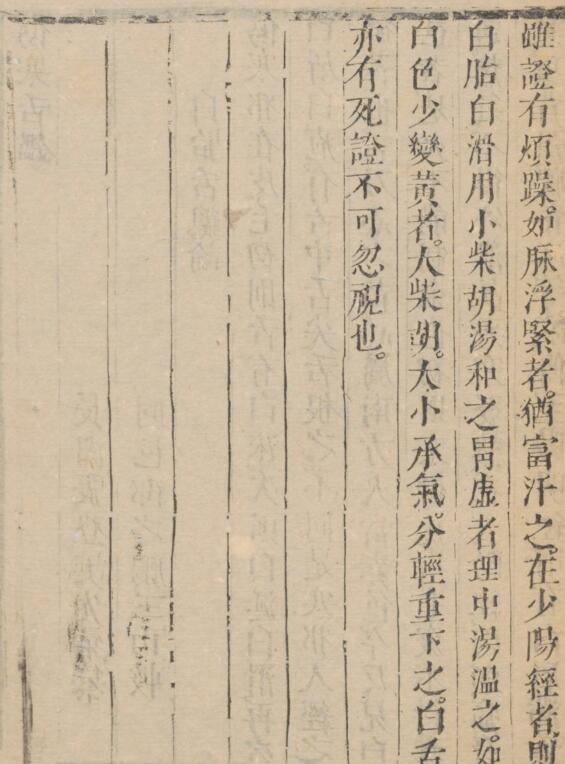 雖證有煩躁。如脉浮緊者。猶當汗之。在少陽經者則
白胎白滑用小柴胡湯和之胃虛者理中湯溫之。如
白色少變黃者。大柴胡。大小承氣。分輕重下之。白舌
亦有死證不可忽視也。